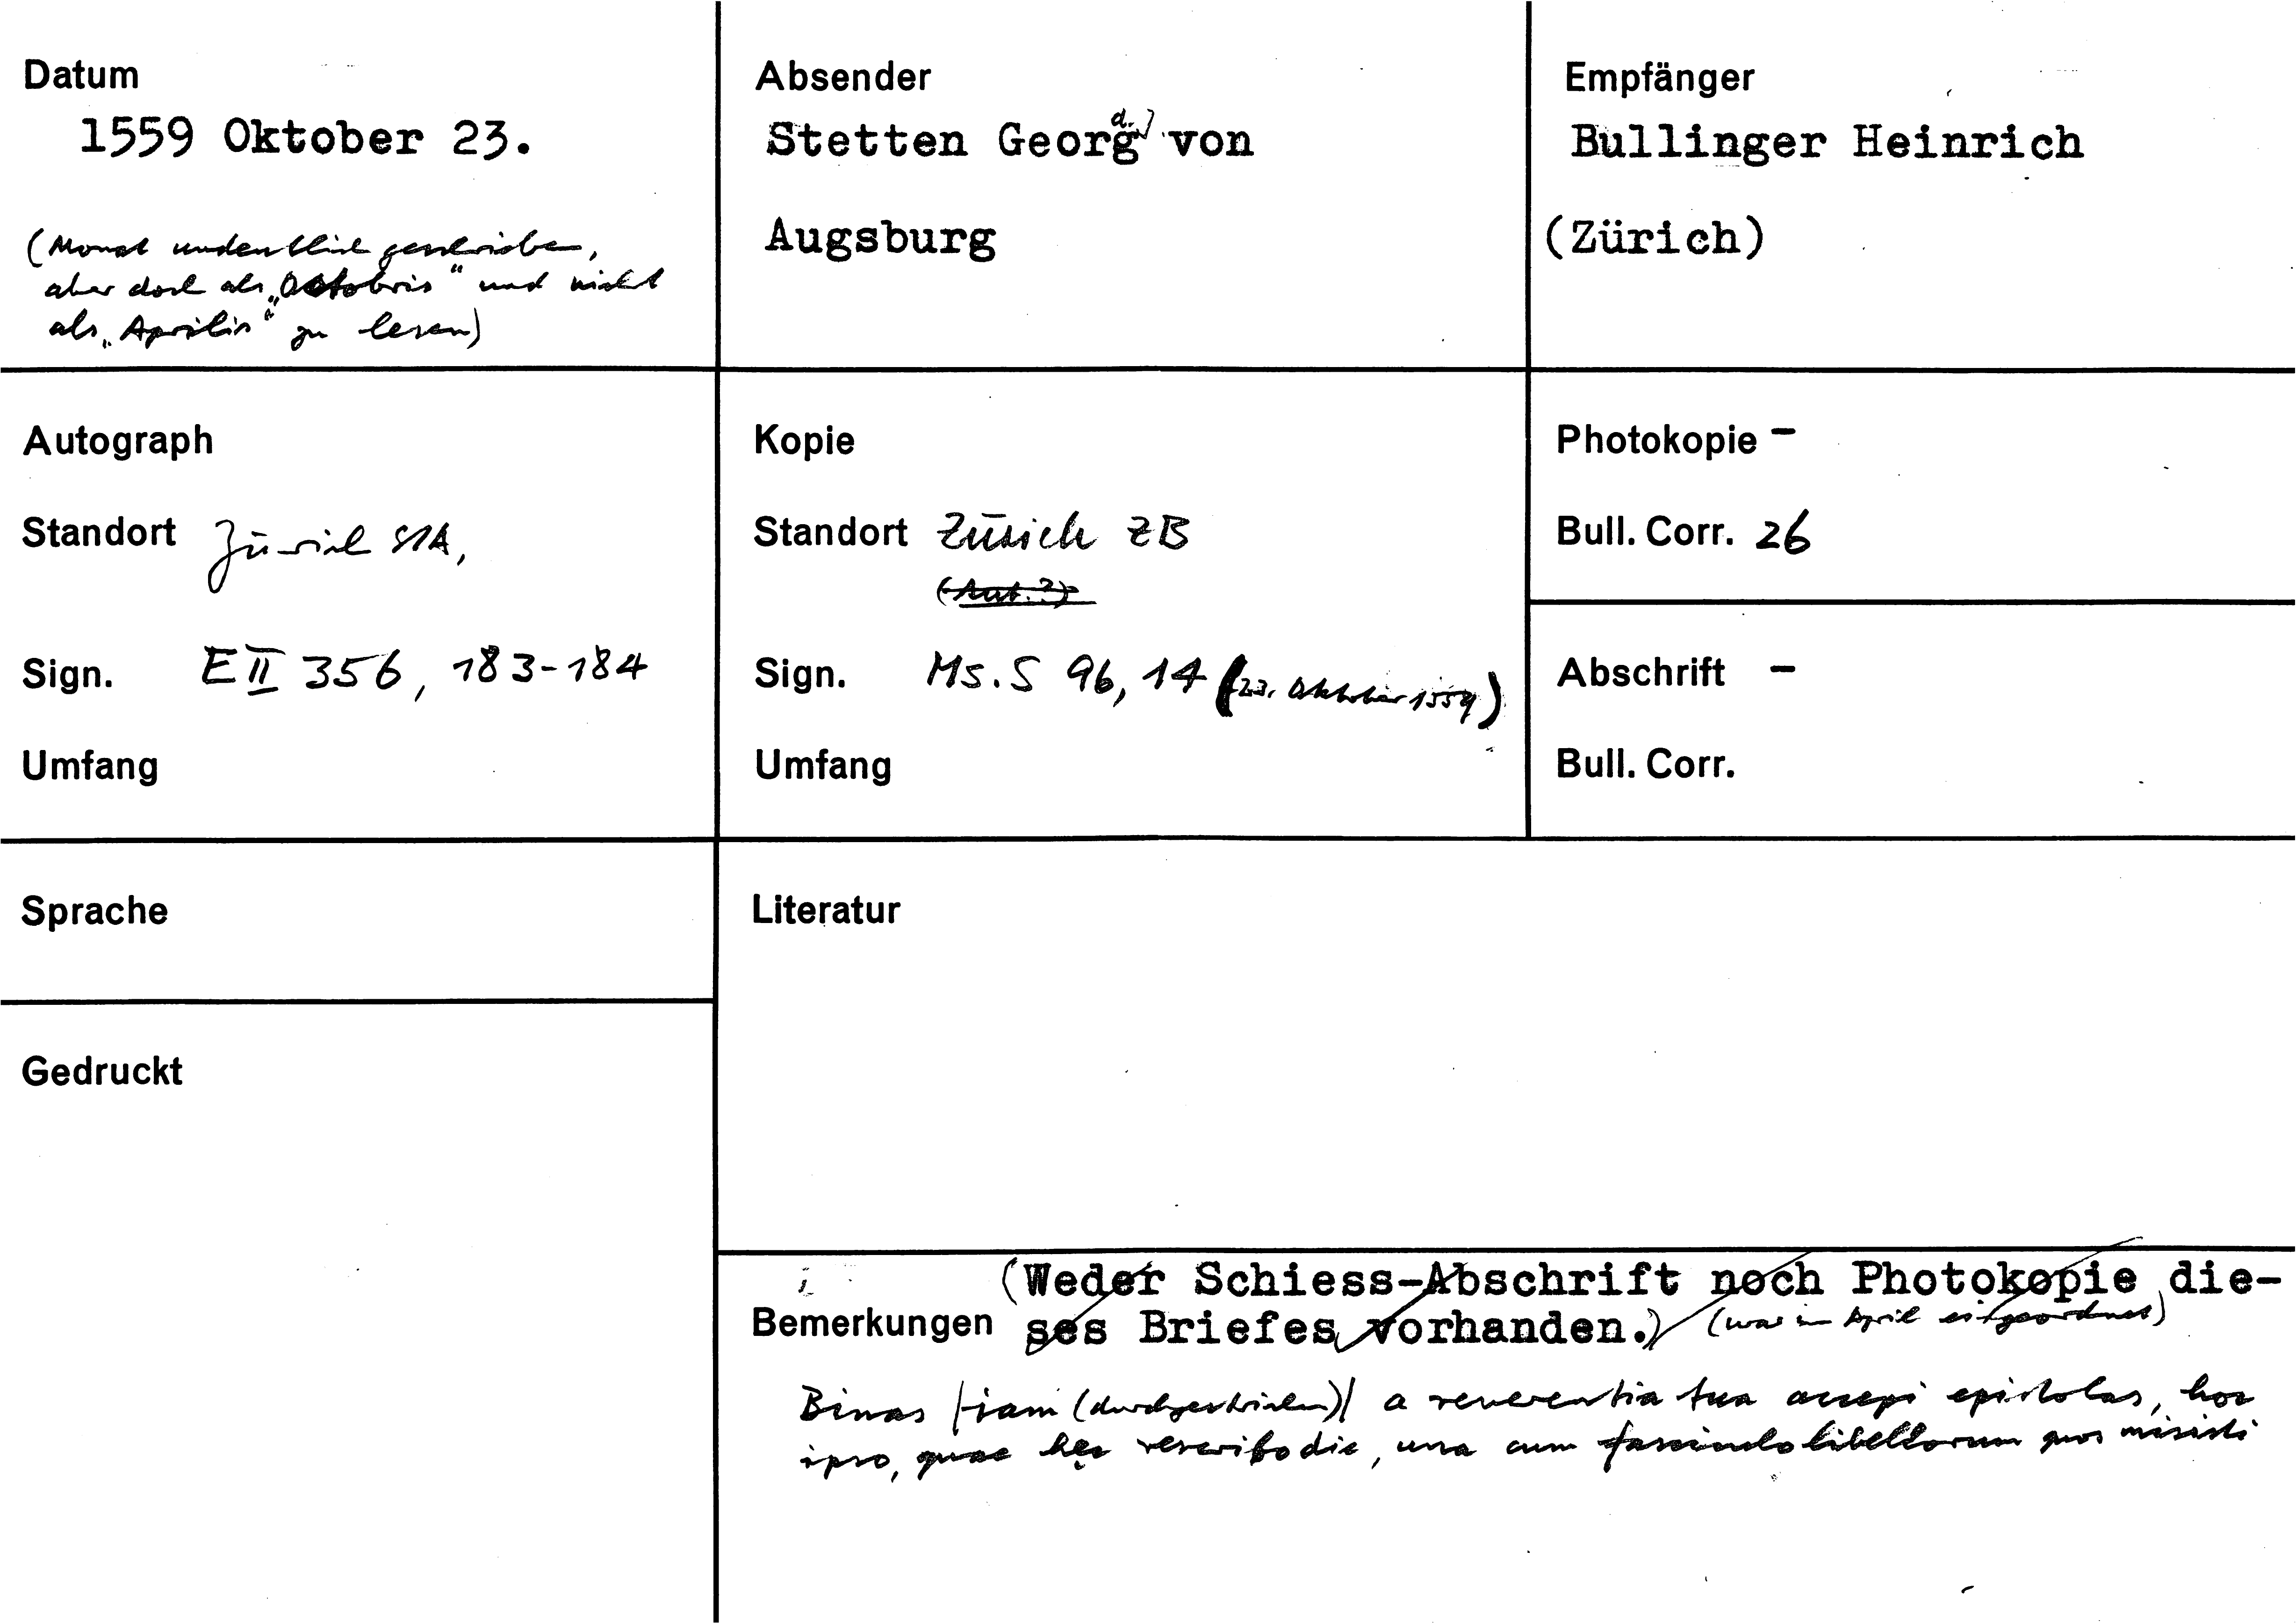 Datum
1559 Oktober 23.
(Monat undeutlich geschrieben,
aber doch als „Octobris“ und nicht
als „Aprilis“ zu lesen)
Absender
Stetten Georg d. J. von
Augsburg
Empfänger
Bullinger Heinrich
(Zürich)
Autograph
Standort Zürich StA,
Sign. E II 356, 183-184
Umfang
Kopie
Standort Zürich ZB
(Aut.?)
Sign. Ms. S 96, 14 (23. Oktober 1559)
Umfang
Photokopie -
Bull. Corr. 26
Abschrift -
Bull. Corr.
Sprache
Literatur
Gedruckt
(Weder Schiess-Abschrift noch Photokopie die-
Bemerkungen ses Briefes vorhanden.) (war im April eingeordnet)
Binas /iam (durchgestrichen)/ a reverentia tua accepi epistolas, hoc
ipso, quae rescribo die, una cum fasciculo libellorum quos misisti